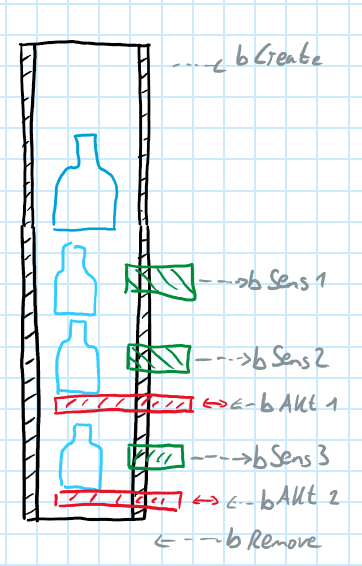 b Create
b Sens 1
b Sens 2
b Akt 1
b Sens 3
b Akt 2
b Remove